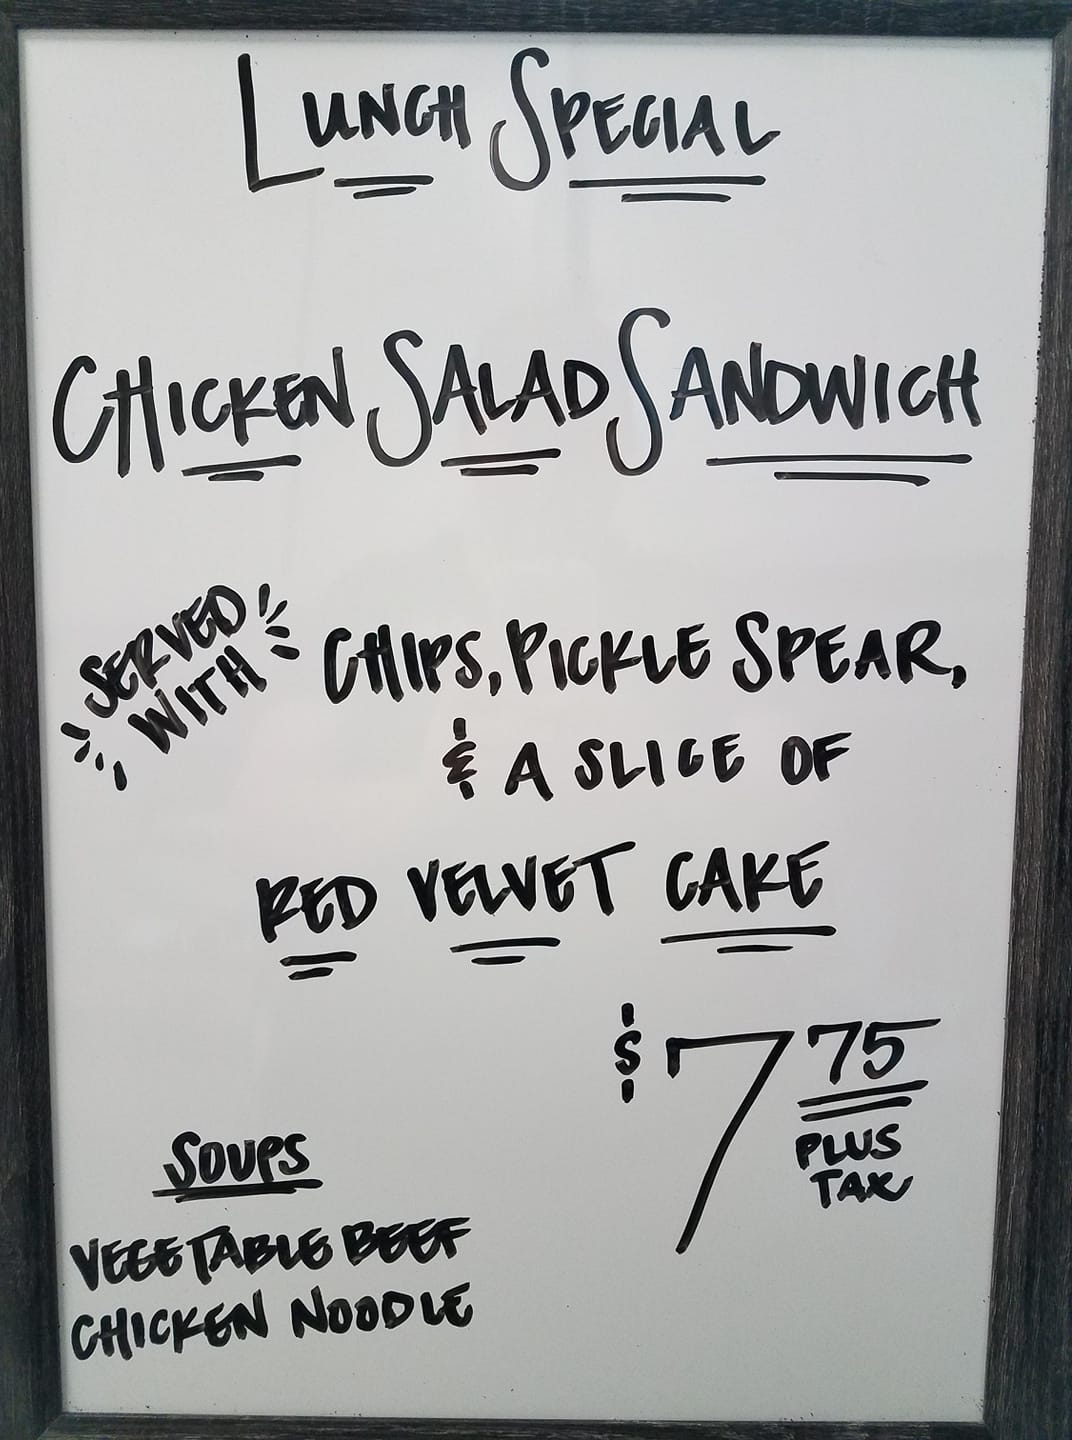 LUNCH SPECIAL
CHICKEN SALAD SANDWICH
SERVED
WITH
CHIPS, PICKLE SPEAR,
& A SLICE OF
RED VELVET CAKE
$7 75
PLUS
TAX
SOUPS
VEGETABLE BEEF
CHICKEN NOODLE